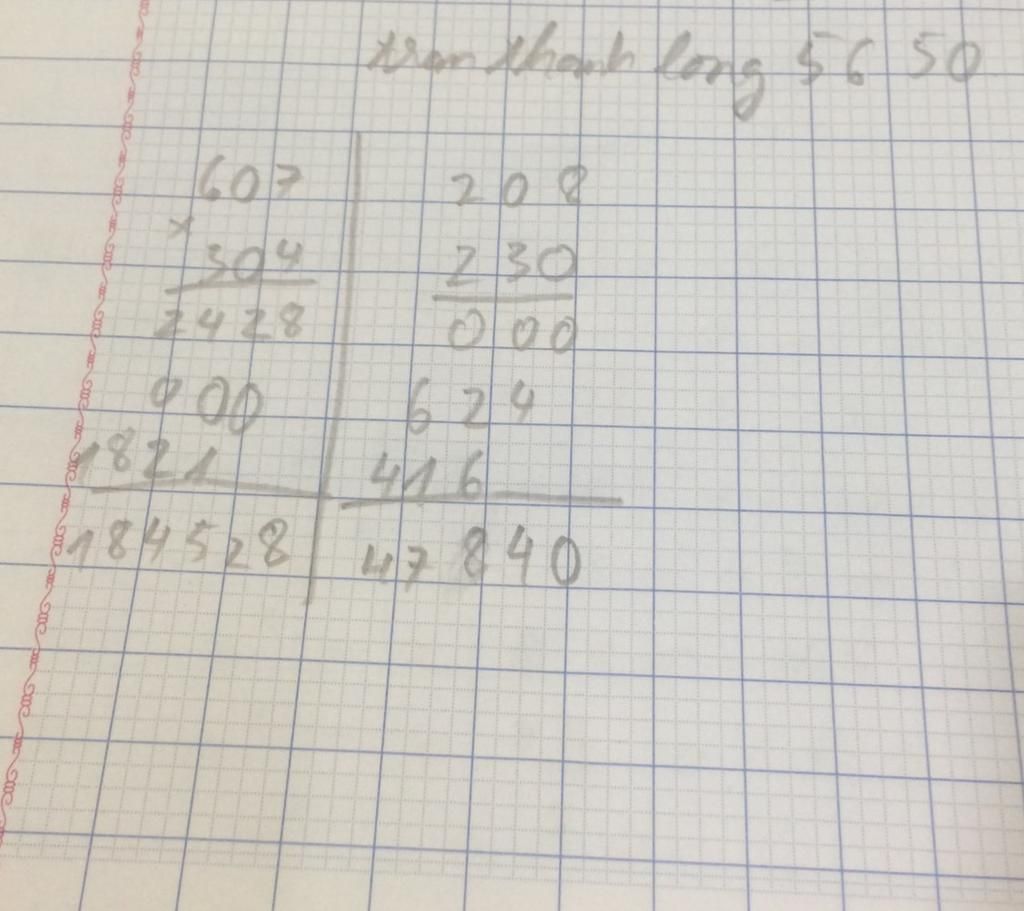 tran thanh long 56 50
607 208
x
304 230
2428 000
000 624
1821 416
184528 47840